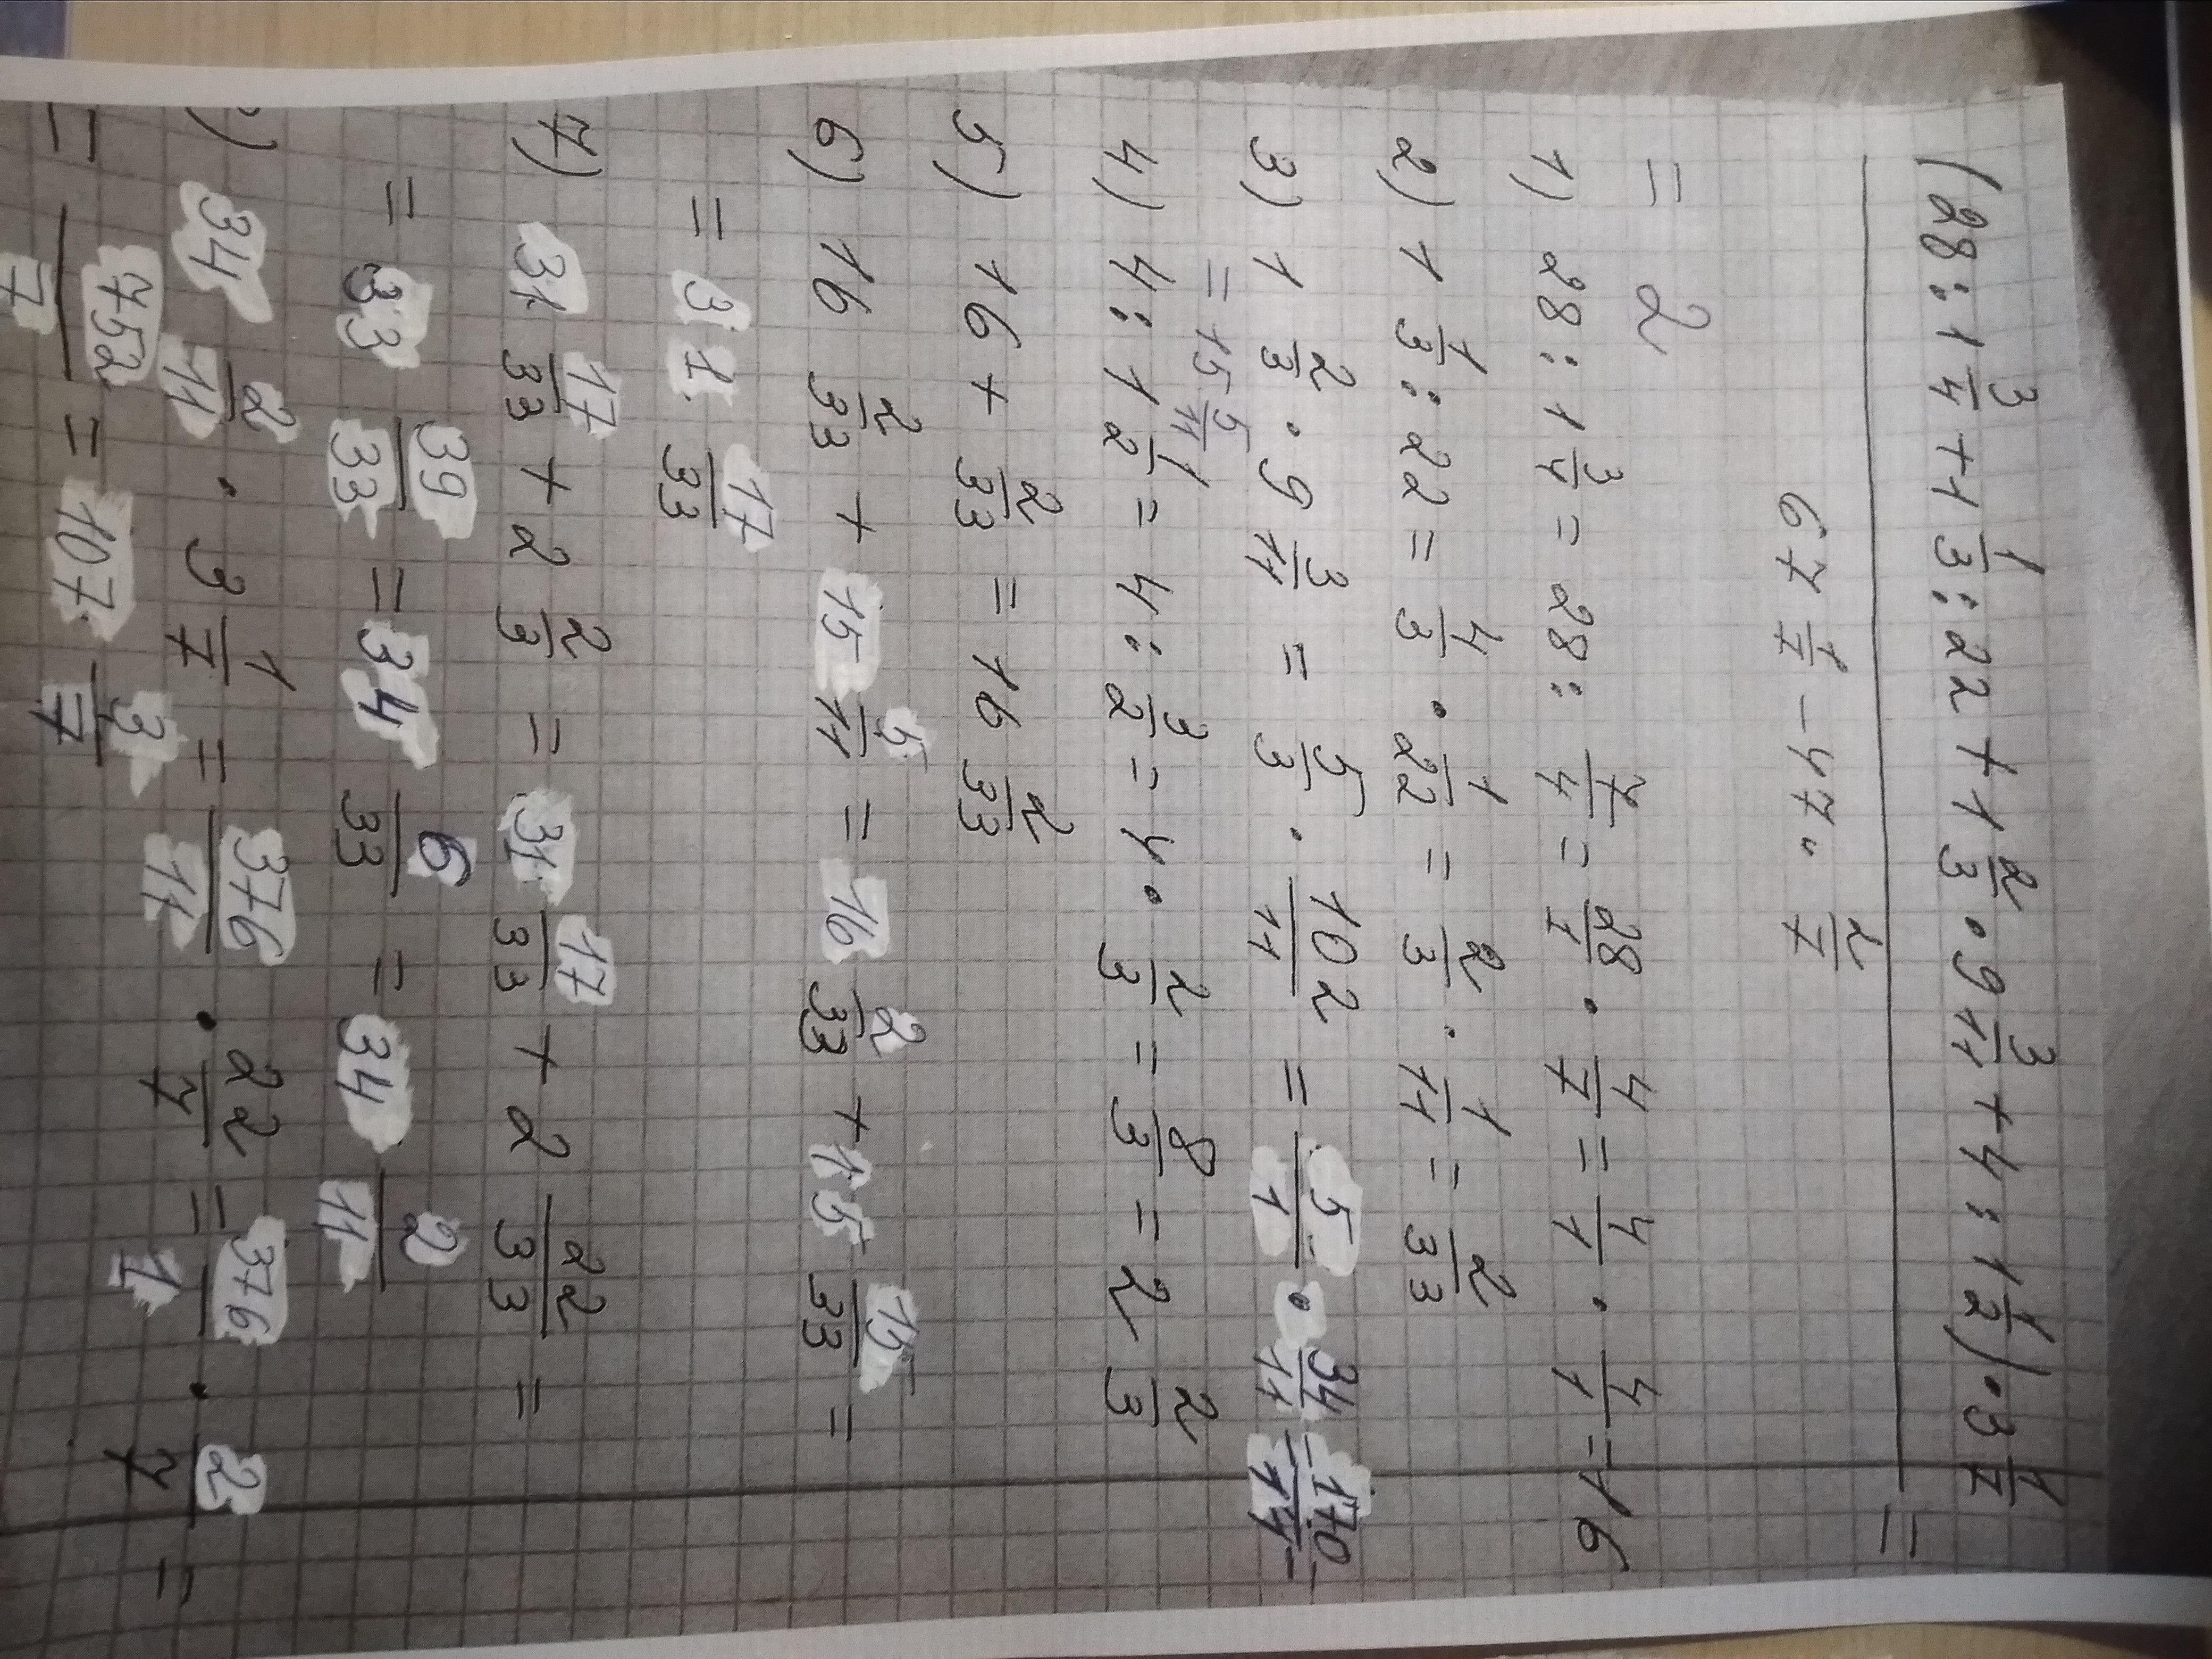 (28:1 3/4+1 1/3:22+1 2/3·9 3/11+4:1 1/2)·3 1/7 =
67 1/7-47·2/7
= 2
1) 28:1 3/4=28:7/4=28/1·4/7=4/1·4/1=16
2) 1 1/3:22=4/3·1/22=2/3·1/11=2/33
3) 1 2/3·9 3/11=5/3·102/11=5/1·34/11=170/11=
=15 5/11
4) 4:1 1/2=4:3/2=4·2/3=8/3=2 2/3
5) 16+2/33=16 2/33
6) 16 2/33+15 5/11=16 2/33+15 15/33=
=31 17/33
7) 31 17/33+2 2/3=31 17/33+2 22/33=
=33 39/33=34 6/33=34 2/11
) 34 2/11·3 1/7=376/11·22/7=376/1·2/7=
=752/7=107 3/7